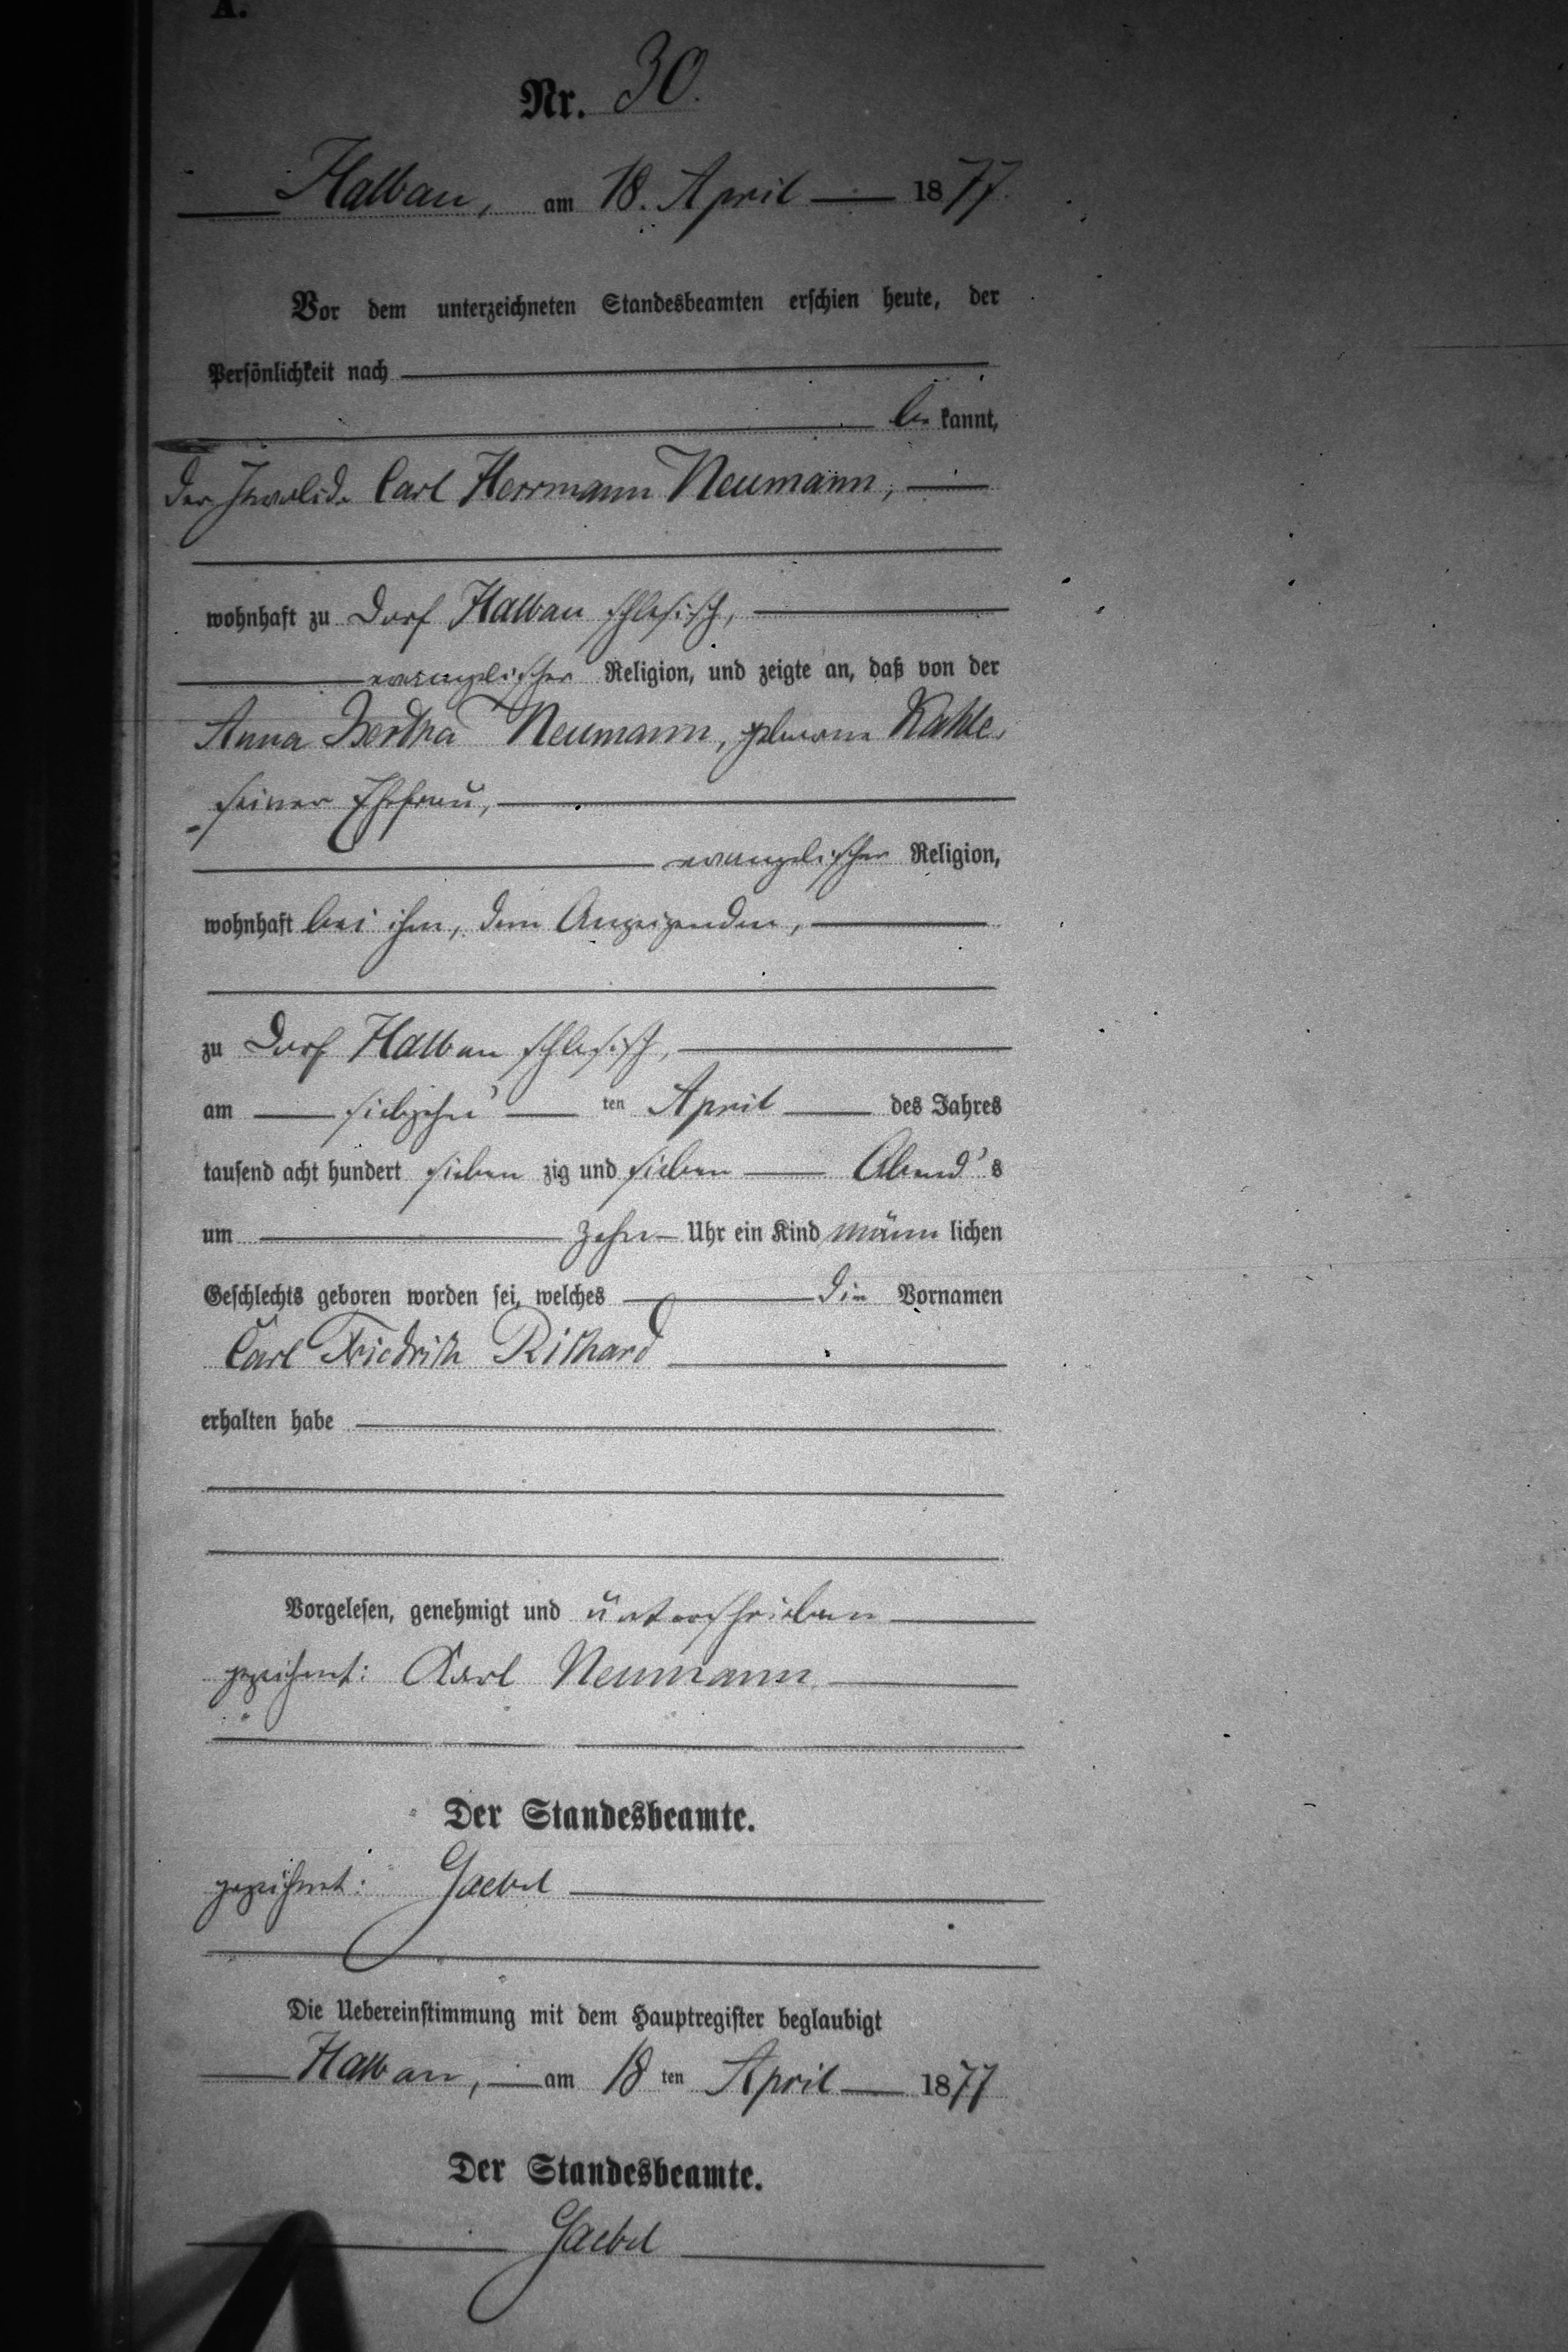 A.
Nr. 30.
Halbau, am 18. April 1877.
Vor dem unterzeichneten Standesbeamten erschien heute, der
Persönlichkeit nach
be kannt,
der Invalide Carl Herrmann Neumann,
wohnhaft zu Dorf Halbau schlesisch,
evangelischer Religion, und zeigte an, daß von der
Anna Bertha Neumann, geborene Kahle,
seiner Ehefrau,
evangelischer Religion,
wohnhaft bei ihm, dem Anzeigenden,
zu Dorf Halbau schlesisch,
am siebzehn ten April des Jahres
tausend acht hundert sieben zig und sieben Abend's
um zehn Uhr ein Kind männ lichen
Geschlechts geboren worden sei, welches die Vornamen
Carl Friedrich Richard
erhalten habe
Vorgelesen, genehmigt und unterschrieben
gezeichnet: Karl Neumann
Der Standesbeamte.
gezeichnet: Gaebel
Die Uebereinstimmung mit dem Hauptregister beglaubigt
Halbau, am 18 ten April 1877
Der Standesbeamte.
Gaebel